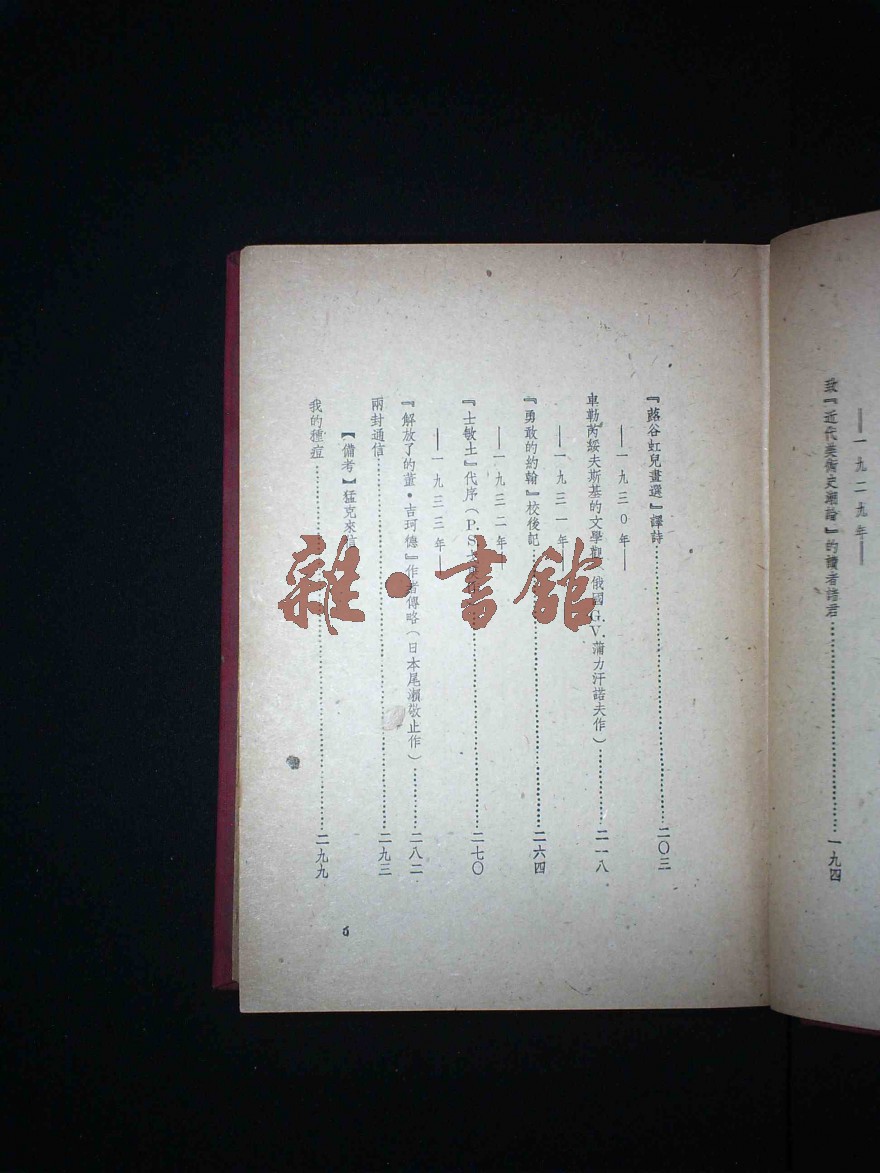 ——一九二九年——
致『近代美術史潮論』的讀者諸君……一九四
『蕗谷虹兒畫選』譯詩……二〇三
——一九三〇年——
車勒芮綏夫斯基的文學觀(俄國G.V.蒲力汗諾夫作)……二一八
——一九三一年——
『勇敢的約翰』校後記……二六四
——一九三二年——
『士敏土』代序(P.S.……二七〇
——一九三三年——
『解放了的董·吉珂德』作者傳略(日本尾瀨敬止作)……二八二
兩封通信……二九三
【備考】猛克來信
我的種痘……二九九
6
雜·書館